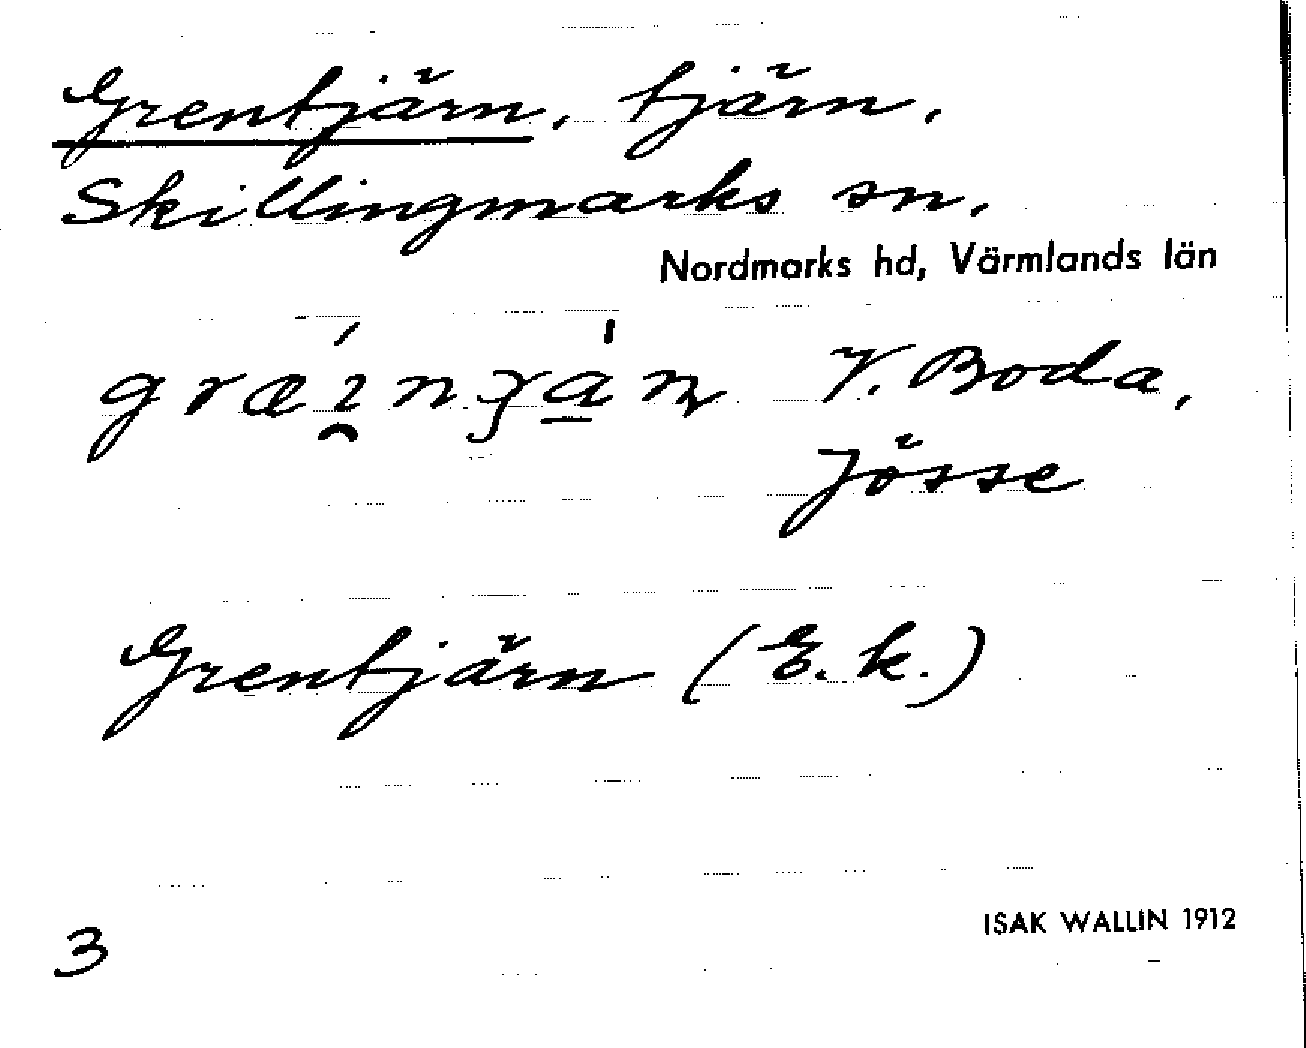 Grentjärn, tjärn,
Skillingmarks sn,
Nordmarks hd, Värmlands län
V. Boda,
Jösse
Grentjärn (E. k.)
ISAK WALLIN 1912
3